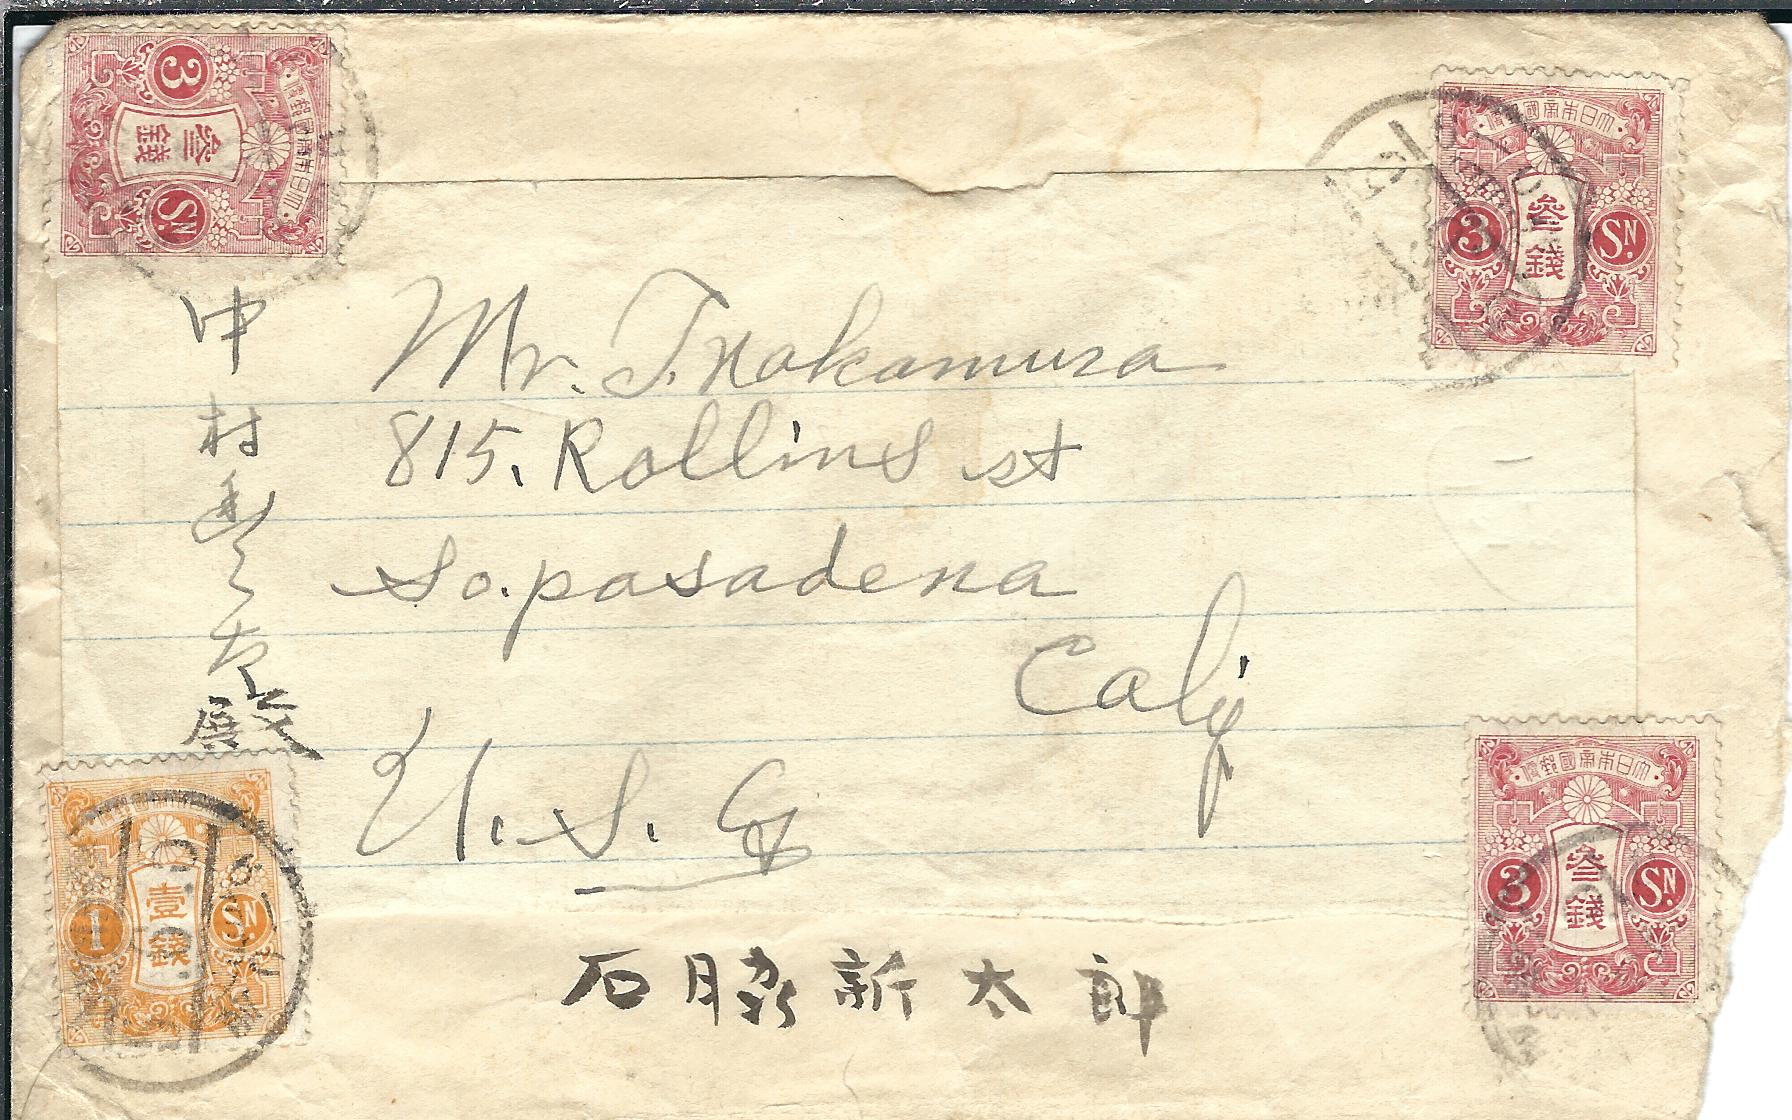 3
参銭
SN
大日本帝国郵便
大日本帝国郵便
参銭
3
SN
中村
殿
Mr. T. Nakamura
815. Rollins st
So. pasadena
Calif
U. S. A
1
壹銭
SN
大日本帝国郵便
参銭
3
SN
石脇新太郎